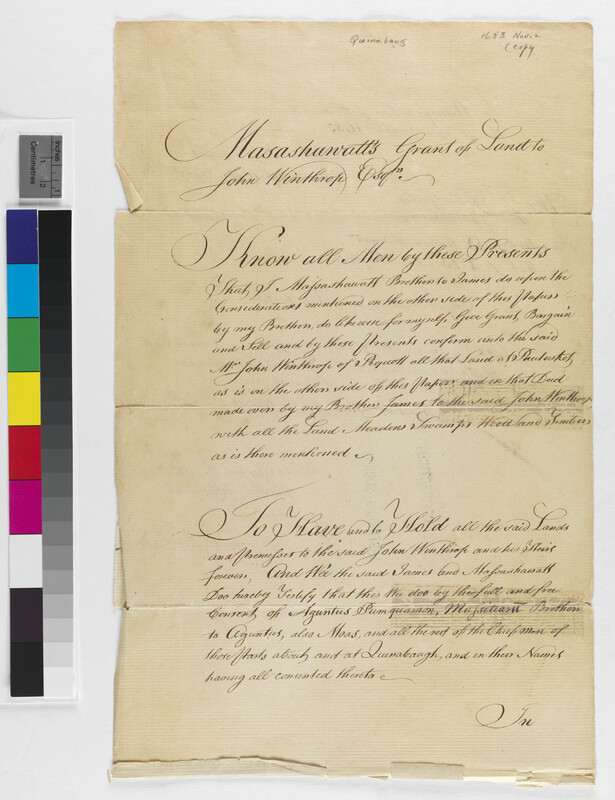 Quinabaug
1653 Nov. 2
(copy
Masashawatt's Grant of Land to
John Winthrop Esqr.
Know all Men by these Presents
That I Massashawatt Brother to James do upon the
Considerations mentioned on the other side of this Paper
by my Brother, do likewise for myself Give Grant, Bargain
and Sell and by these Presents confirm unto the said
Mr. John Winthrop of Pequott all that Land at Pautuxket,
as is on the other side of this Paper, and in that Deed
made over by my Brother James to the said John Winthrop
with all the Land Meadows Swamps Wood and Timber
as is there mentioned
To Have and to Hold all the said Lands
and Premisses to the said John Winthrop and his Heirs
forever, And We the said James and Massashawatt
Doo hereby Testify that this We doo by the full and free
Consent of Aguntus Pumquamon, Brother
to Aguntus, also Moas, and all the rest of the Chief men of
those Parts about and at Quinabaugh, and in their Names
having all consented thereto
In
Centimetres
Inches